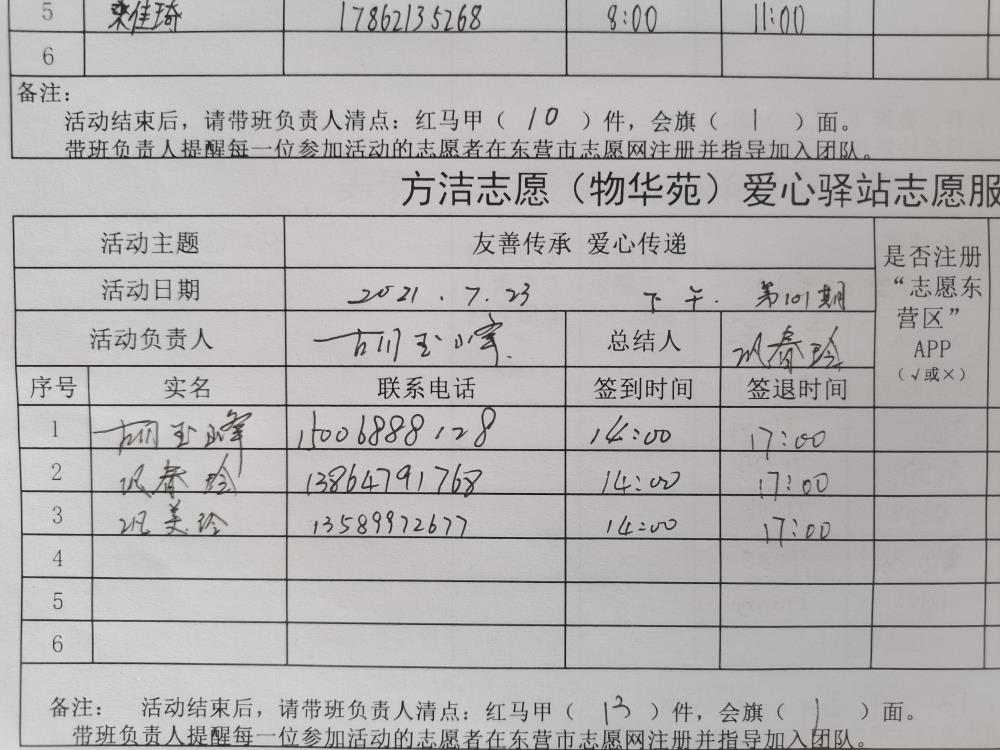 5 栾佳琦 17862135268 8:00 11:00
6
备注：
活动结束后，请带班负责人清点：红马甲（ 10 ）件，会旗（ 1 ）面。
带班负责人提醒每一位参加活动的志愿者在东营市志愿网注册并指导加入团队。
方洁志愿（物华苑）爱心驿站志愿服
活动主题 友善传承 爱心传递
是否注册“志愿东营区”APP（√或×）
活动日期 2021.7.23 下午. 第101期
活动负责人 总结人 春玲
序号 实名 联系电话 签到时间 签退时间
1 玉峰 15006888128 14:00 17:00
2 春玲 13864791768 14:00 17:00
3 美玲 13589972677 14:00 17:00
4
5
6
备注： 活动结束后，请带班负责人清点：红马甲（ 13 ）件，会旗（ 1 ）面。
带班负责人提醒每一位参加活动的志愿者在东营市志愿网注册并指导加入团队。